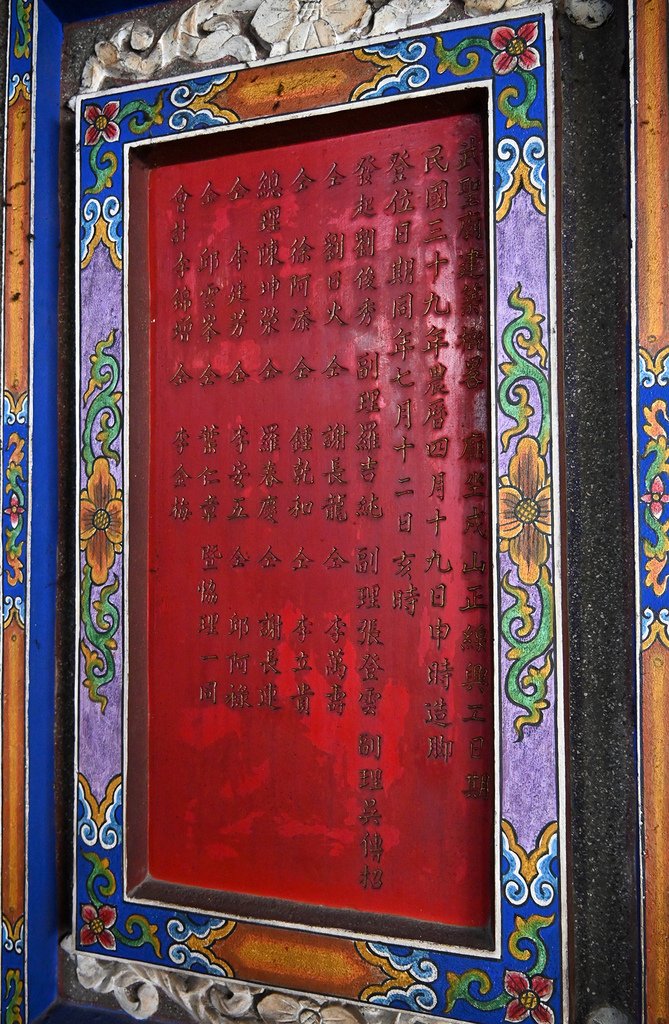 武聖廟建築概畧 廟坐戌山正線興工日期
民國三十九年農曆四月十九日申時造脚
登位日期同年七月十二日亥時
發起劉俊秀 副理羅吉純 副理張登雲 副理吳傳招
仝 劉日火 仝 謝長龍 仝 李萬壽
仝 徐阿添 仝 鍾乾和 仝 李立貴
總理陳坤榮 仝 羅春慶 仝 謝長連
仝 李建芳 仝 李安五 仝 邱阿祿
仝 邱雲岺 仝 葉仁章 暨協理一同
會計李錦增 仝 李金梅